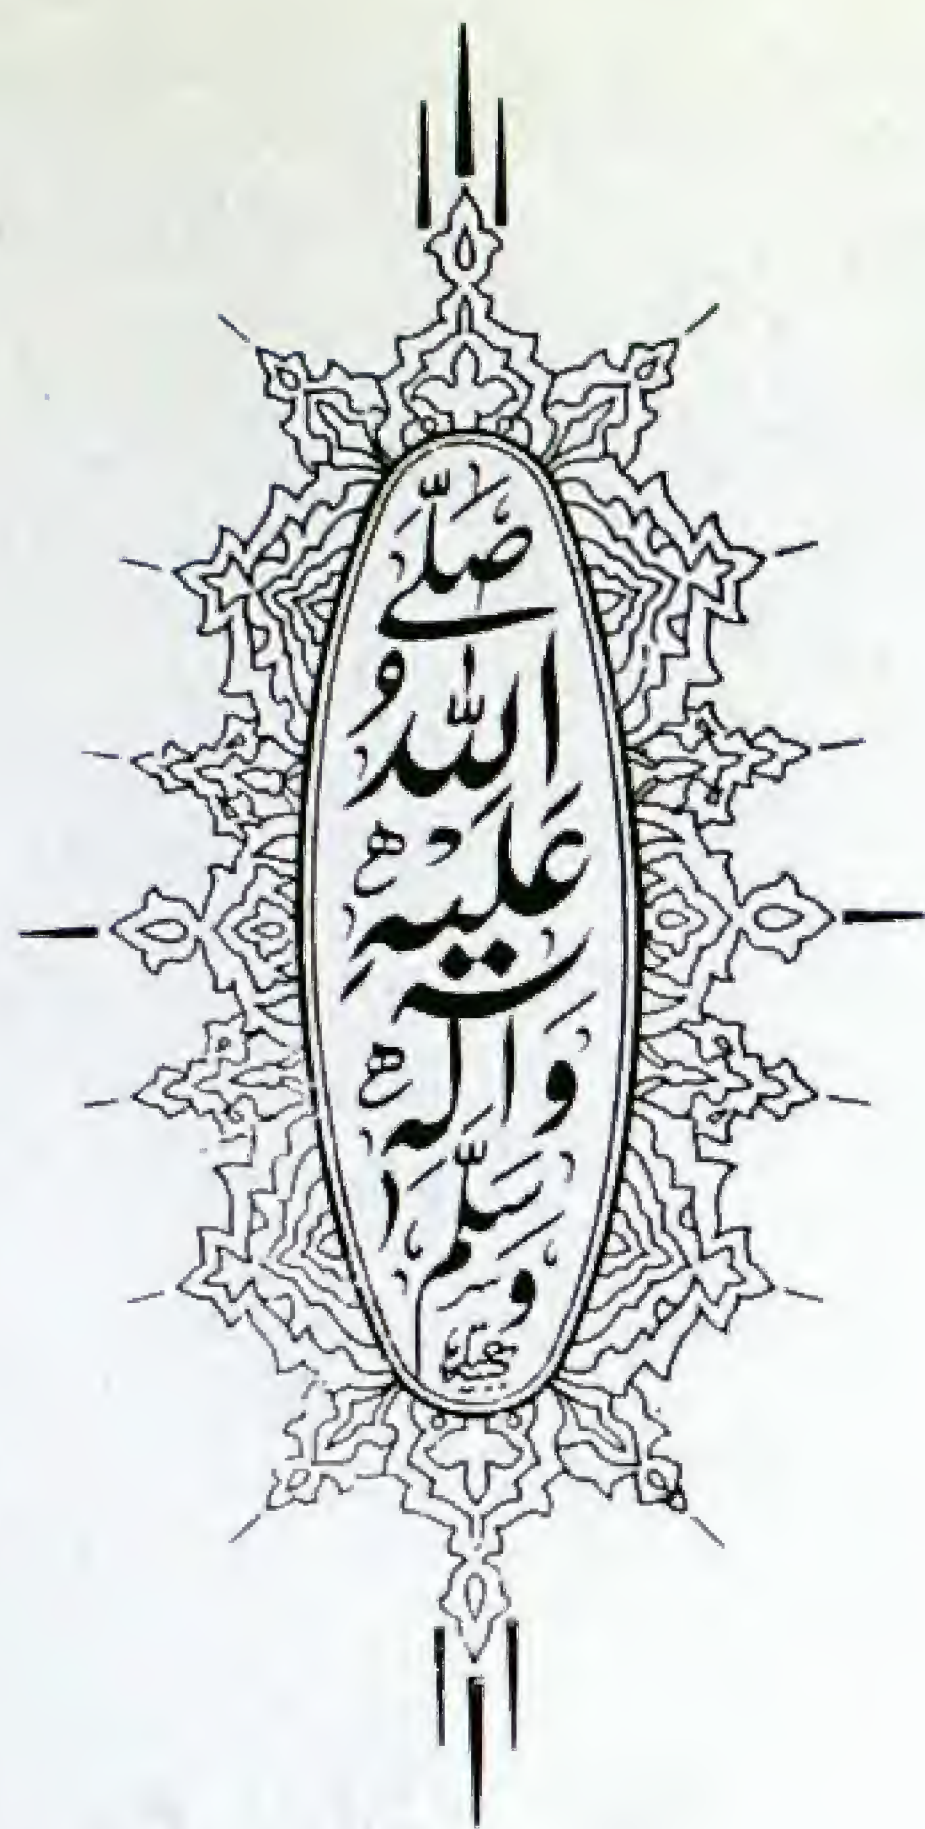 صَلَّى
اللّٰهُ
عَلَيْهِ
وَآلِهٖ
وَسَلَّمَ